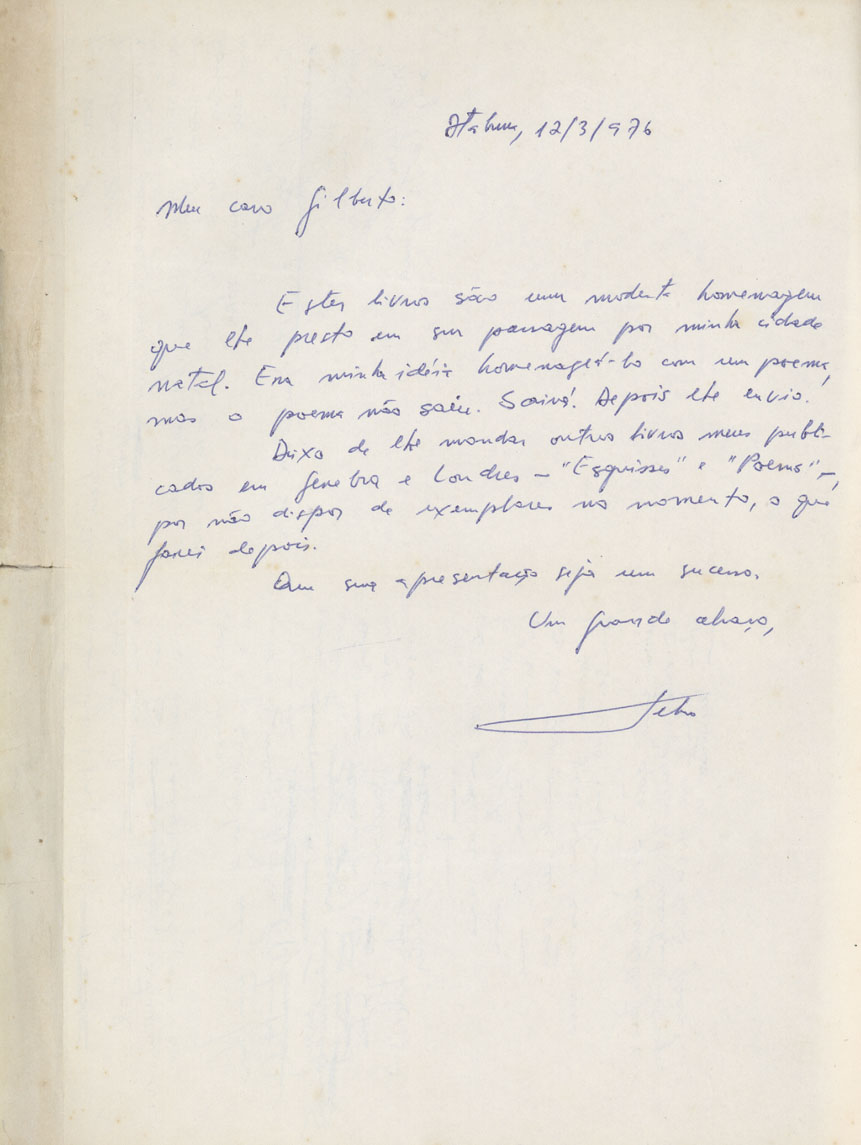 Itabuna, 12/3/976
Meu caro Gilberto:
Estes livros são uma modesta homenagem
que lhe presto em sua passagem por minha cidade
natal. Era minha idéia homenageá-lo com um poema,
mas o poema não saiu. Sairá. Depois lhe envio.
Deixo de lhe mandar outros livros meus publi-
cados em Genebra e Londres – "Esquisses" e "Poems" –,
por não dispor de exemplares no momento, o que
farei depois.
Que sua apresentação seja um sucesso.
Um grande abraço,
Telmo